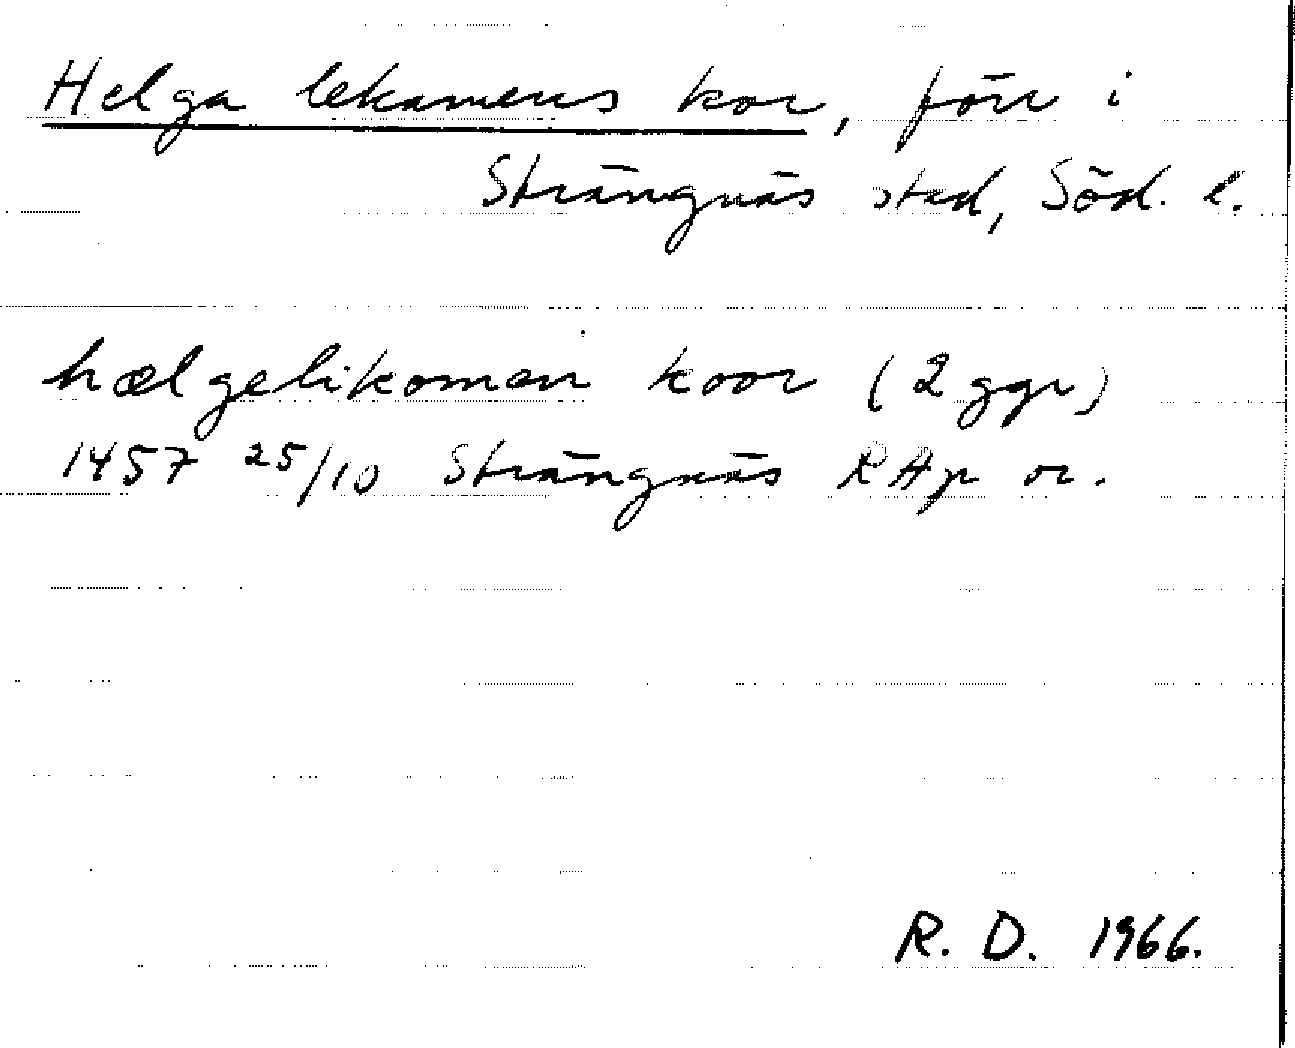 Helga lekamens kor, förr i
Strängnäs stad, Söd. l.
hælgelikoman koor (2 ggr)
1457 25/10 Strängnäs RAp or.
R. D. 1966.